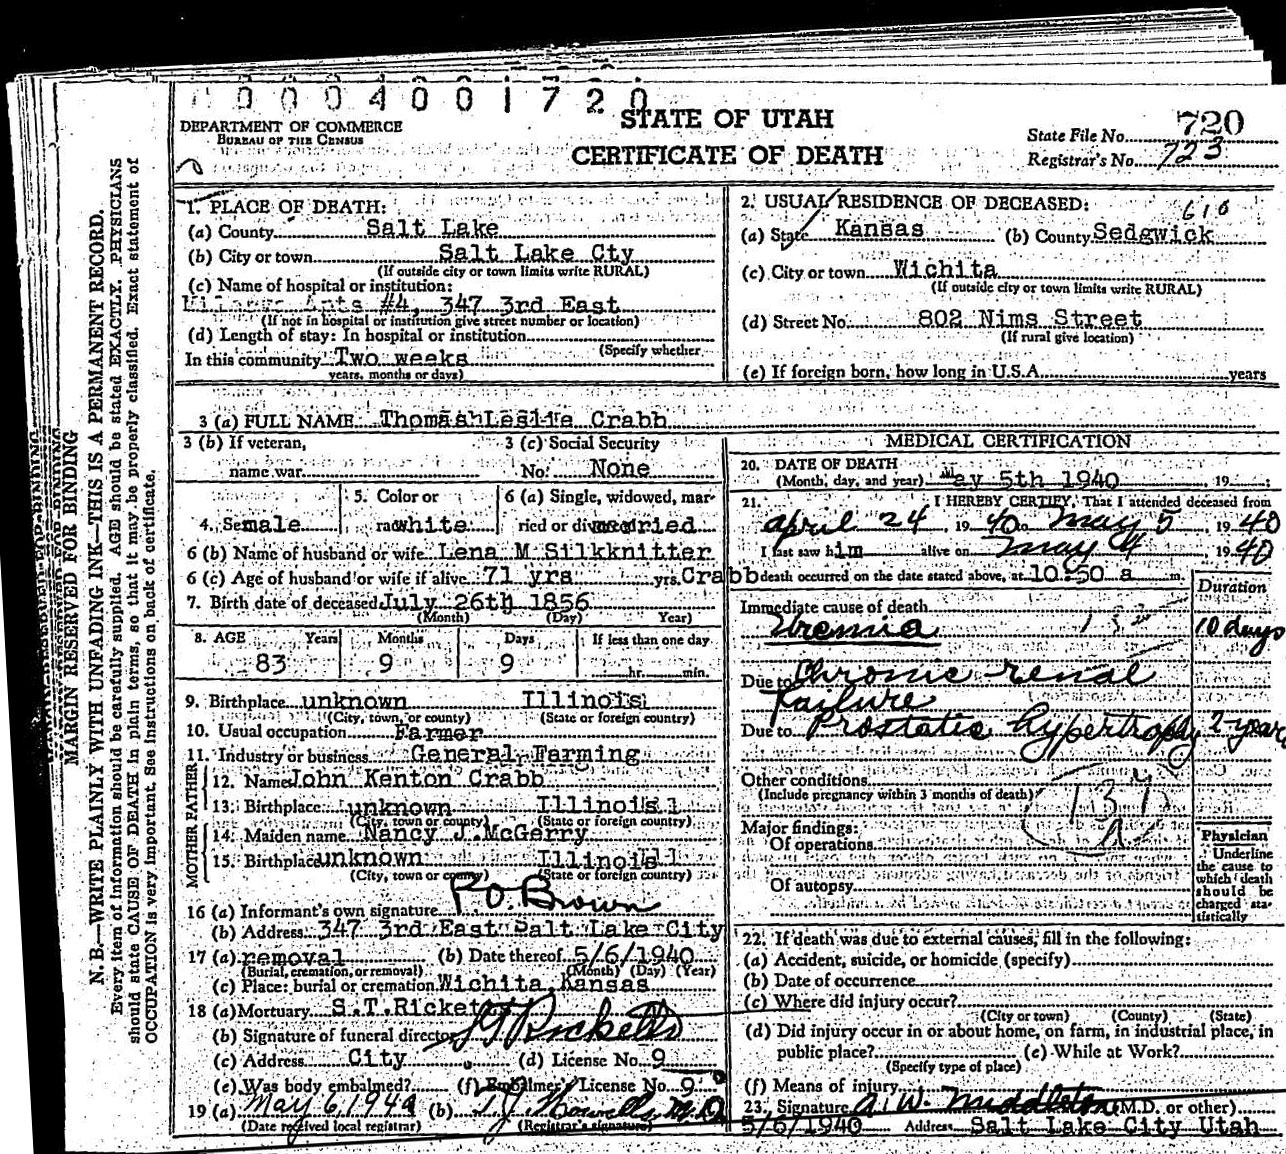 0004001720
DEPARTMENT OF COMMERCE
BUREAU OF THE CENSUS
STATE OF UTAH
CERTIFICATE OF DEATH
State File No. 720
Registrar's No. 723
1. PLACE OF DEATH:
(a) County Salt Lake
(b) City or town Salt Lake Cty
(If outside city or town limits write RURAL)
(c) Name of hospital or institution:
#4, 347 3rd East
(If not in hospital or institution give street number or location)
(d) Length of stay: In hospital or institution
(Specify whether
In this community Two weeks
years, months or days)
2. USUAL RESIDENCE OF DECEASED:
616
(a) State Kansas (b) County Sedgwick
(c) City or town Wichita
(If outside city or town limits write RURAL)
(d) Street No. 802 Nims Street
(If rural give location)
(e) If foreign born, how long in U.S.A. years
3 (a) FULL NAME Thomas Leslie Crabb
3 (b) If veteran,
name war
3 (c) Social Security
No. None
4. Sex male
5. Color or
race white
6 (a) Single, widowed, mar-
ried or divorced married
6 (b) Name of husband or wife Lena M Silkknitter
6 (c) Age of husband or wife if alive 71 yrs yrs. Crabb
7. Birth date of deceased July 26th 1856
(Month) (Day) Year)
8. AGE Years Months Days If less than one day
83 9 9 hr. min.
9. Birthplace unknown Illinois
(City, town, or county) (State or foreign country)
10. Usual occupation Farmer
11. Industry or business General Farming
FATHER
12. Name John Kenton Crabb
13. Birthplace unknown Illinois
(City, town or county) (State or foreign country)
MOTHER
14. Maiden name Nancy J. McGerry
15. Birthplace unknown Illinois
(City, town or county) (State or foreign country)
16 (a) Informant's own signature P O. Brown
(b) Address 347 3rd East Salt Lake City
17 (a) removal (b) Date thereof 5/6/1940
(Burial, cremation, or removal) (Month) (Day) (Year)
(c) Place: burial or cremation Wichita, Kansas
18 (a) Mortuary S.T. Ricketts
(b) Signature of funeral director S T Ricketts
(c) Address City (d) License No. 9
(e) Was body embalmed? (f) Embalmer's License No. 9
19 (a) May 6, 1940 (b) M.D.
(Date received local registrar) (Registrar's signature)
MEDICAL CERTIFICATION
20. DATE OF DEATH
(Month, day, and year) May 5th 1940, 19 ;
21. I HEREBY CERTIFY, That I attended deceased from
April 24, 1940 to May 5, 1940
I last saw him alive on May 4 1940
death occurred on the date stated above, at 10:50 a m.
Duration
Immediate cause of death
Uremia 10 days
Due to Chronic renal
Failure
Due to Prostatic hypertrophy 2 years
Other conditions
(Include pregnancy within 3 months of death)
137
A
Major findings:
Of operations
Of autopsy
Physician
Underline
the cause to
which death
should be
charged sta-
tistically
22. If death was due to external causes, fill in the following:
(a) Accident, suicide, or homicide (specify)
(b) Date of occurrence
(c) Where did injury occur?
(City or town) (County) (State)
(d) Did injury occur in or about home, on farm, in industrial place, in
public place? (e) While at Work?
(Specify type of place)
(f) Means of injury
23. Signature A. W. Middleton (M.D. or other)
5/6/1940 Address Salt Lake City Utah
MARGIN RESERVED FOR BINDING
N. B.—WRITE PLAINLY WITH UNFADING INK—THIS IS A PERMANENT RECORD.
Every item of information should be carefully supplied. AGE should be stated EXACTLY. PHYSICIANS
should state CAUSE OF DEATH in plain terms, so that it may be properly classified. Exact statement of
OCCUPATION is very important. See instructions on back of certificate.